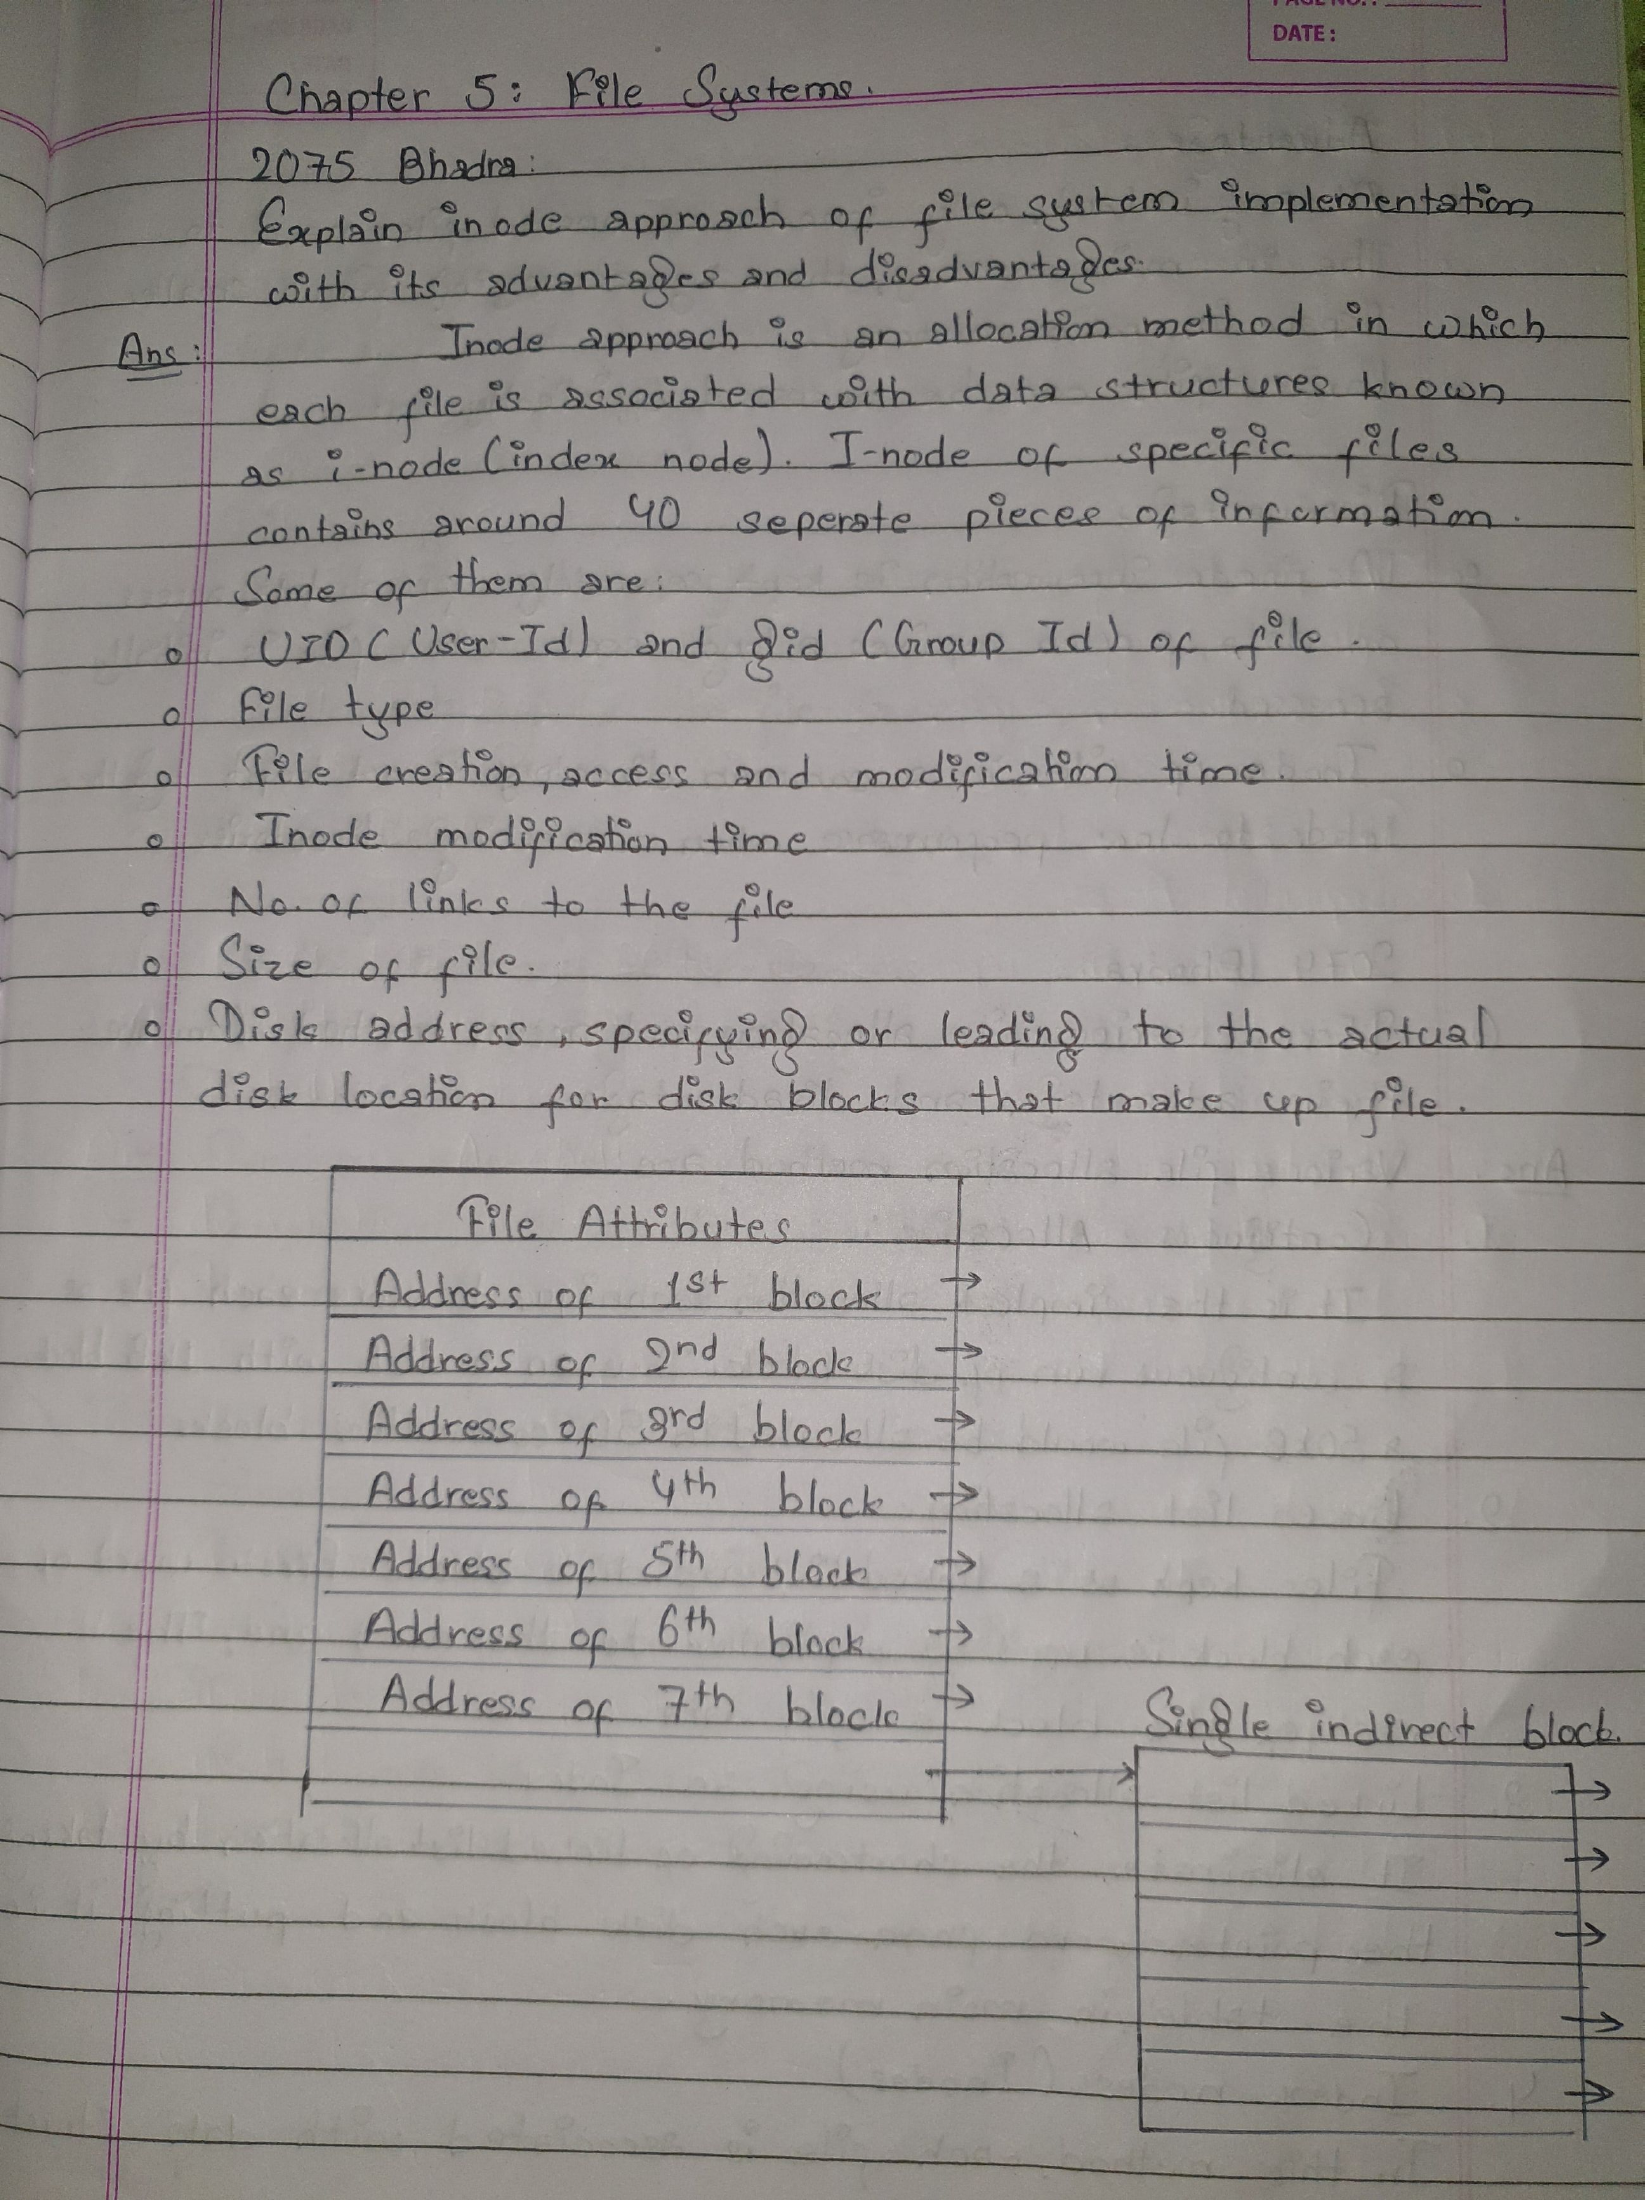 PAGE NO.:
DATE:
Chapter 5: File Systems.
2075 Bhadra:
Explain inode approach of file system implementation
with its advantages and disadvantages.
Ans: Inode approach is an allocation method in which
each file is associated with data structures known
as i-node (index node). I-node of specific files
contains around 40 seperate pieces of information.
Some of them are:
o UID (User-Id) and gid (Group Id) of file.
o File type
o File creation, access and modification time.
o Inode modification time
o No. of links to the file
o Size of file.
o Disk address, specifying or leading to the actual
disk location for disk blocks that make up file.
File Attributes
Address of 1st block
Address of 2nd block
Address of 3rd block
Address of 4th block
Address of 5th block
Address of 6th block
Address of 7th block
Single indirect block.